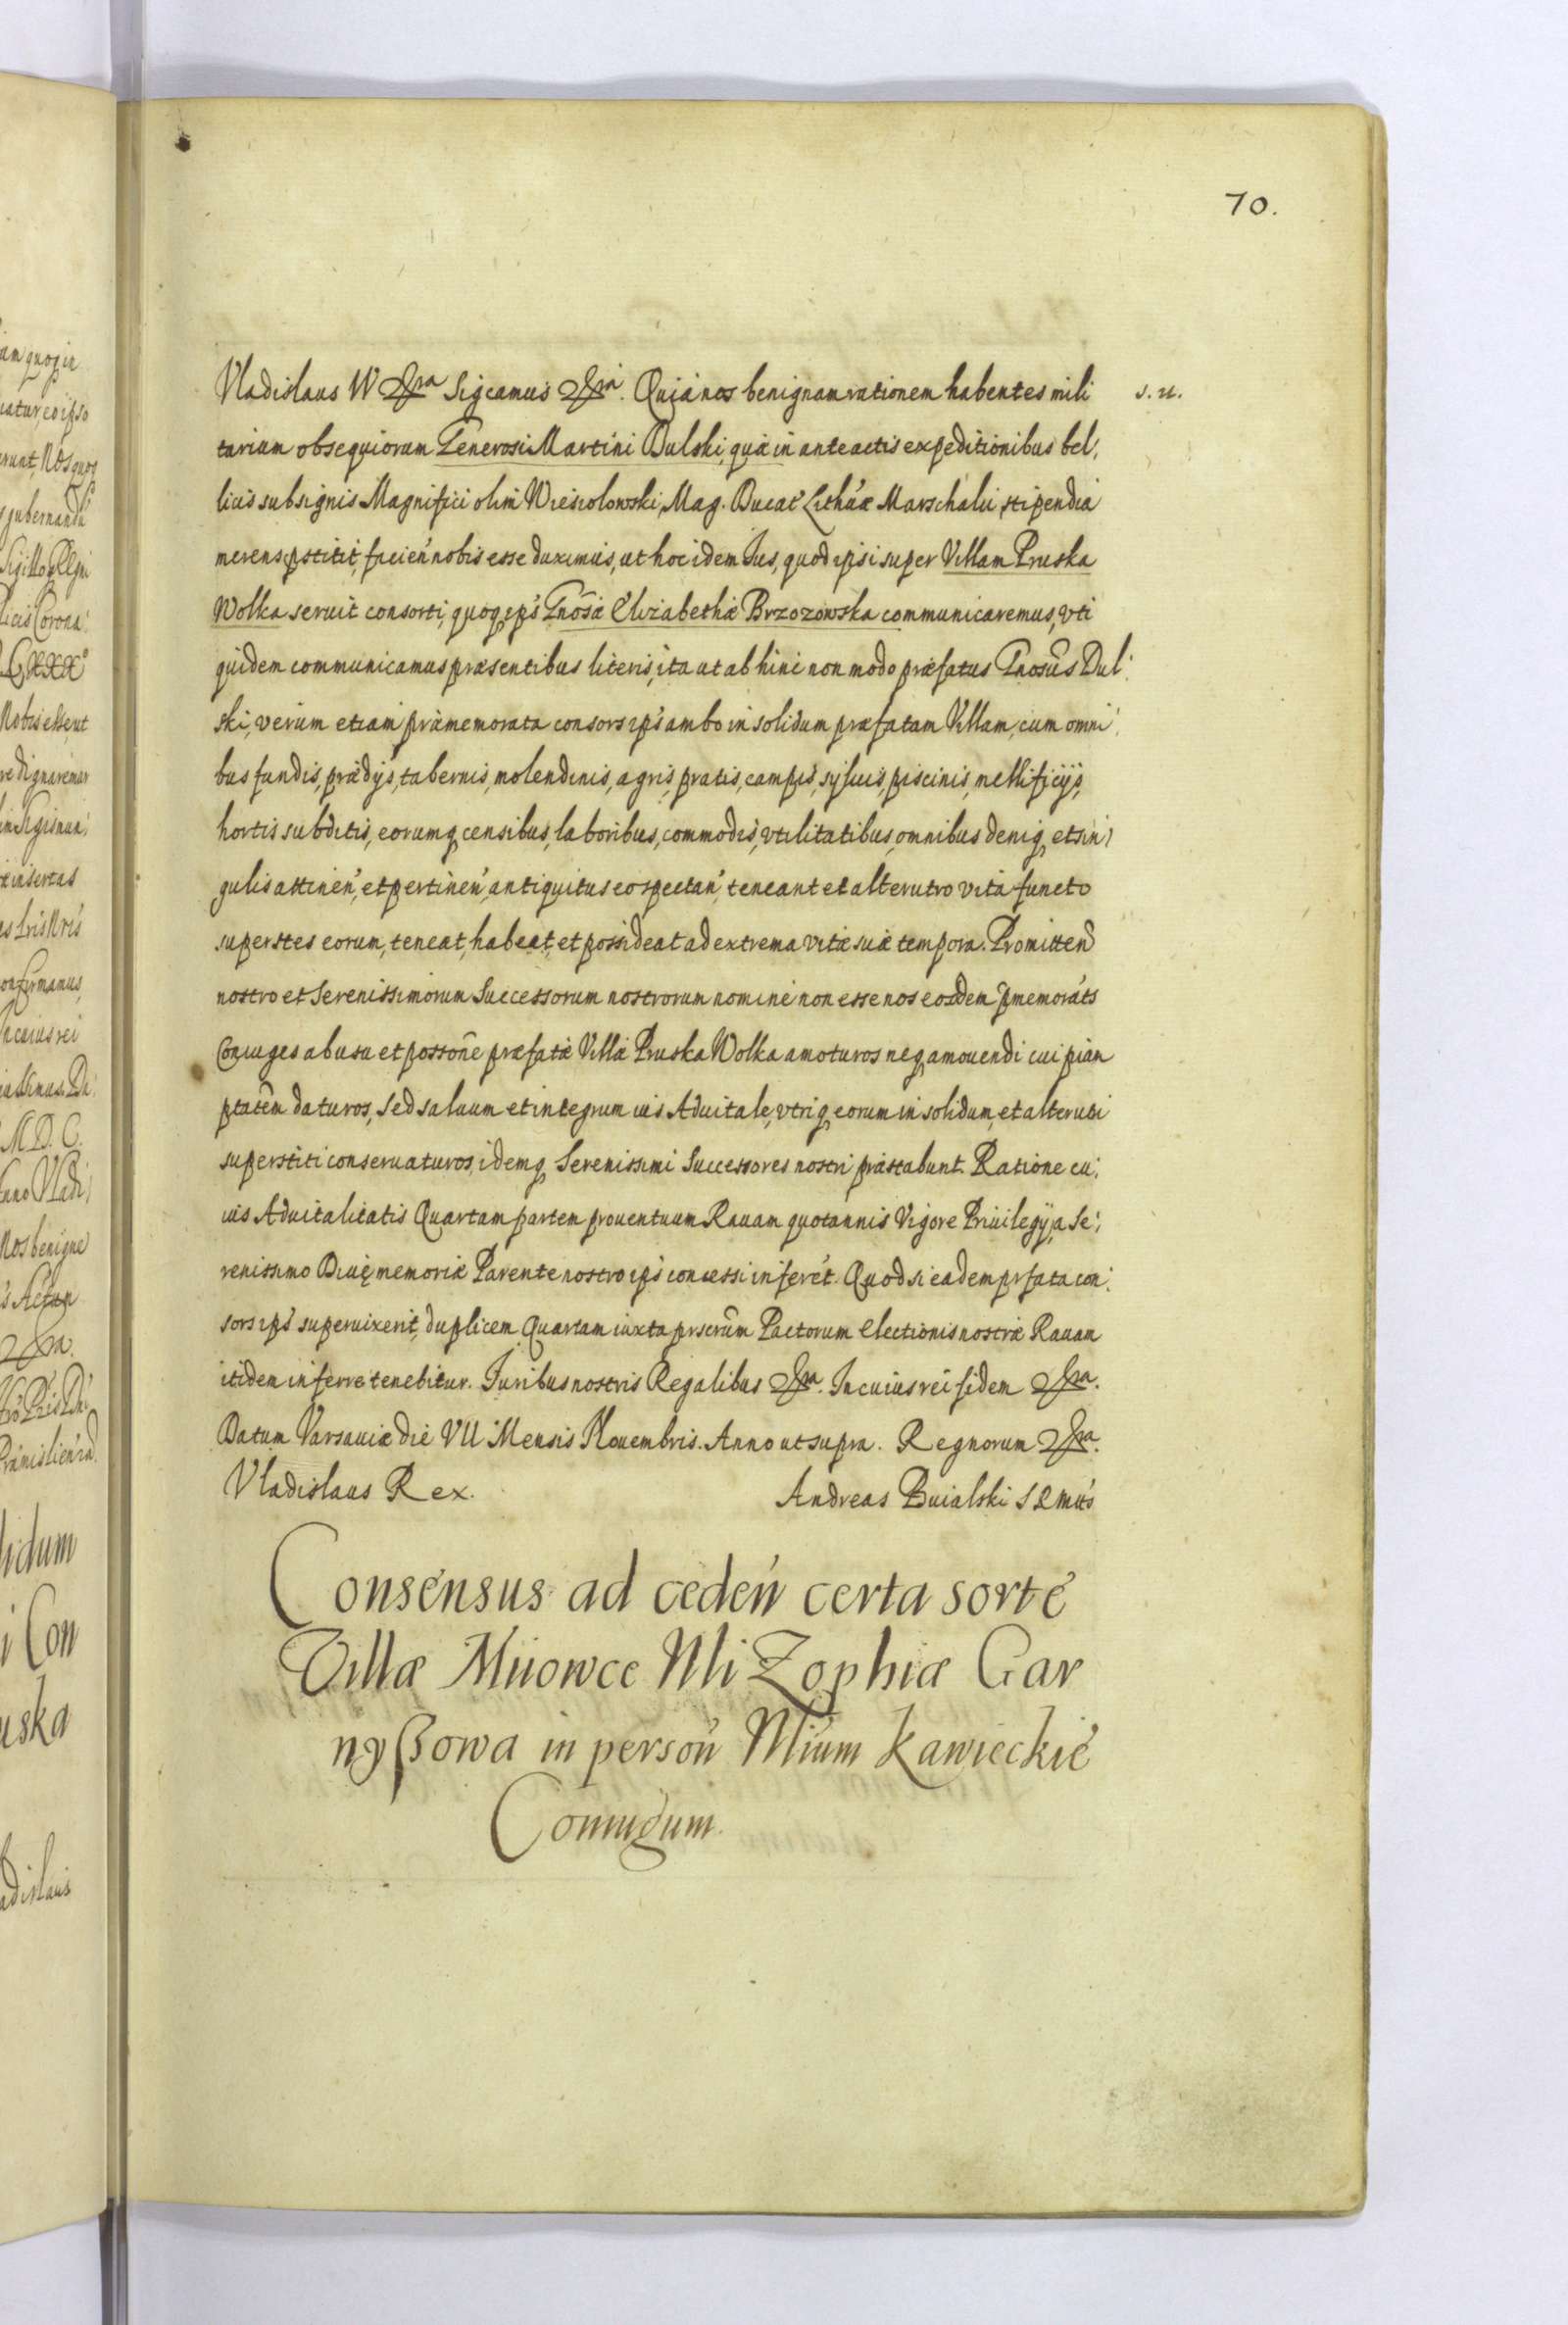 70.
Vladislaus IV &cra Sigcamus &cra. Quia nos benignam rationem habentes mili s. u.
tarium obsequiorum Generosi Martini Dulski, quæ in anteactis expeditionibus bel,
licis sub signis Magnifici olim Wiesiolowski, Mag. Ducat' Lithu'æ Marschalci, stipendia
merens pstitit, facien' nobis esse duximus, ut hoc idem Ius, quod ipsi super Villam Pruska
Wolka seruit consorti, quoq ips' Gnosæ Elizabethæ Brzozowska communicaremus, vti
quidem communicamus præsentibus literis, ita ut ab hinc non modo præfatus Gnosus Dul:
ski, verum etiam præmemorata consors ips' ambo in solidum præfatam Villam, cum omni:
bus fundis, prædijs, tabernis, molendinis, agris, pratis, campis, syluis, piscinis, mellificijs,
hortis subditis, eorumq censibus, laboribus, commodis, vtilitatibus, omnibus deniq et sin,
gulis attinen', et pertinen', antiquitus eo spectan', teneant et alterutro vita functo
superstes eorum, teneat, habeat, et possideat ad extrema vitæ suæ tempora. Promitten
nostro et Serenissimorum Successorum nostrorum nomine non esse nos eosdem pmemorats
Coniuges ab usu et possone præfatæ Villæ Pruska Wolka amoturos neq amouendi cuipiam
ptatem daturos, sed saluum et integrum ius Aduitale, vtriq eorum in solidum, et alterubi
superstiti conseruaturos, idemq Serenissimi Successores nostri præstabunt. Ratione cu:
ius Aduitalitatis Quartam partem prouentuum Rauam quotannis Vigore Priuilegij, a Se:
renissimo Diuę memoriæ Parente nostro ips' concessi inferet. Quod si eadem prfata con:
sors ips' superuixerit, duplicem Quartam iuxta prscrum Pactorum electionis nostræ Rauam
itidem inferre tenebitur. Iuribus nostris Regalibus &cra. In cuius rei fidem &cra.
Datum Varsauiæ die VII Mensis Nouembris. Anno ut supra. Regnorum &cra.
Vladislaus Rex. Andreas Buialski
Consensus ad ceden' certa sorte
Villæ Miiowce Mli Zophiæ Gar
nyßowa in person' Mlium Kawieckie
Coniugum.